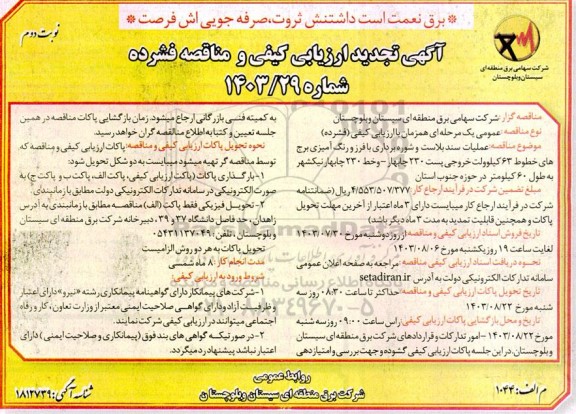 * برق نعمت است داشتنش ثروت،صرفه جویی اش فرصت *
نوبت دوم
شرکت سهامی برق منطقه ای
سیستان وبلوچستان
آگهی تجدید ارزیابی کیفی و مناقصه فشرده
شماره ۱۴۰۳/۲۹
مناقصه گزار: شرکت سهامی برق منطقه ای سیستان وبلوچستان
نوع مناقصه: عمومی یک مرحله ای همزمان با ارزیابی کیفی (فشرده)
موضوع مناقصه: عملیات سندبلاست و شوره برداری با فرز و رنگ آمیزی برج
های خطوط ۶۳ کیلوولت خروجی پست ۲۳۰ چابهار -وخط ۲۳۰ چابهار نیکشهر
به طول ۶۰ کیلومتر در حوزه جنوب استان
مبلغ تضمین شرکت در فرآیند ارجاع کار: ۴/۵۵۳/۵۰۷/۳۷۷ ریال (ضمانتنامه
شرکت در فرآیند ارجاع کار میبایست دارای ۳ ماه اعتبار از آخرین مهلت تحویل
پاکات و همچنین قابلیت تمدید به مدت ۳ ماه دیگر باشد)
تاریخ فروش اسناد ارزیابی کیفی و مناقصه: از روز دوشنبه مورخ ۱۴۰۳/۰۷/۳۰
لغایت ساعت ۱۹ روز یکشنبه مورخ ۱۴۰۳/۰۸/۰۶
نحوه دریافت اسناد ارزیابی کیفی و مناقصه: مراجعه به صفحه اعلان عمومی
سامانه تدارکات الکترونیکی دولت به آدرس setadiran.ir
تاریخ تحویل پاکات ارزیابی کیفی و مناقصه: حداکثر تا ساعت ۰۸:۳۰ روز سه
شنبه مورخ ۱۴۰۳/۰۸/۲۲
تاریخ و محل بازگشایی پاکات ارزیابی کیفی: راس ساعت ۰۹:۰۰ روز سه شنبه
مورخ ۱۴۰۳/۰۸/۲۲ - امور تدارکات و قراردادهای شرکت برق منطقه ای سیستان
وبلوچستان، در این جلسه پاکات ارزیابی کیفی گشوده و جهت بررسی و امتیازدهی
به کمیته فنی بازرگانی ارجاع میشود. زمان بازگشایی پاکات مناقصه در همین
جلسه تعیین و کتبا به اطلاع مناقصه گران خواهد رسید.
نحوه تحویل پاکات ارزیابی کیفی و مناقصه: پاکات ارزیابی کیفی و مناقصه که
توسط مناقصه گر تهیه میشود میبایست به دو شکل تحویل شود:
۱- بارگذاری پاکات (پاکت ارزیابی کیفی، پاکت الف، پاکت ب و پاکت ج) به
صورت الکترونیکی در سامانه تدارکات الکترونیکی دولت مطابق با زمانبندی
۲- تحویل فیزیکی فقط پاکت (الف) مناقصه مطابق با زمانبندی به آدرس
زاهدان، حد فاصل دانشگاه ۳۷ و ۳۹، دبیرخانه شرکت برق منطقه ای سیستان
وبلوچستان، تلفن: ۰۵۴۳۱۱۳۷۰۴۹
تحویل پاکات به هر دو روش الزامیست
مدت انجام کار: ۸ ماه شمسی
شروط ورود به ارزیابی کیفی:
۱- شرکت های پیمانکار دارای گواهینامه پیمانکاری رشته «نیرو» دارای اعتبار
و ظرفیت آزاد و دارای گواهی صلاحیت ایمنی معتبر از وزارت تعاون، کار و رفاه
اجتماعی میتوانند در ارزیابی کیفی شرکت نمایند.
۲- در صورتیکه گواهی های بند فوق (پیمانکاری و صلاحیت ایمنی) دارای
اعتبار نباشد پیشنهاد رد میگردد.
روابط عمومی
شرکت برق منطقه ای سیستان وبلوچستان
م الف: ۱۰۴۴
شناسه آگهی: ۱۸۱۲۷۳۹